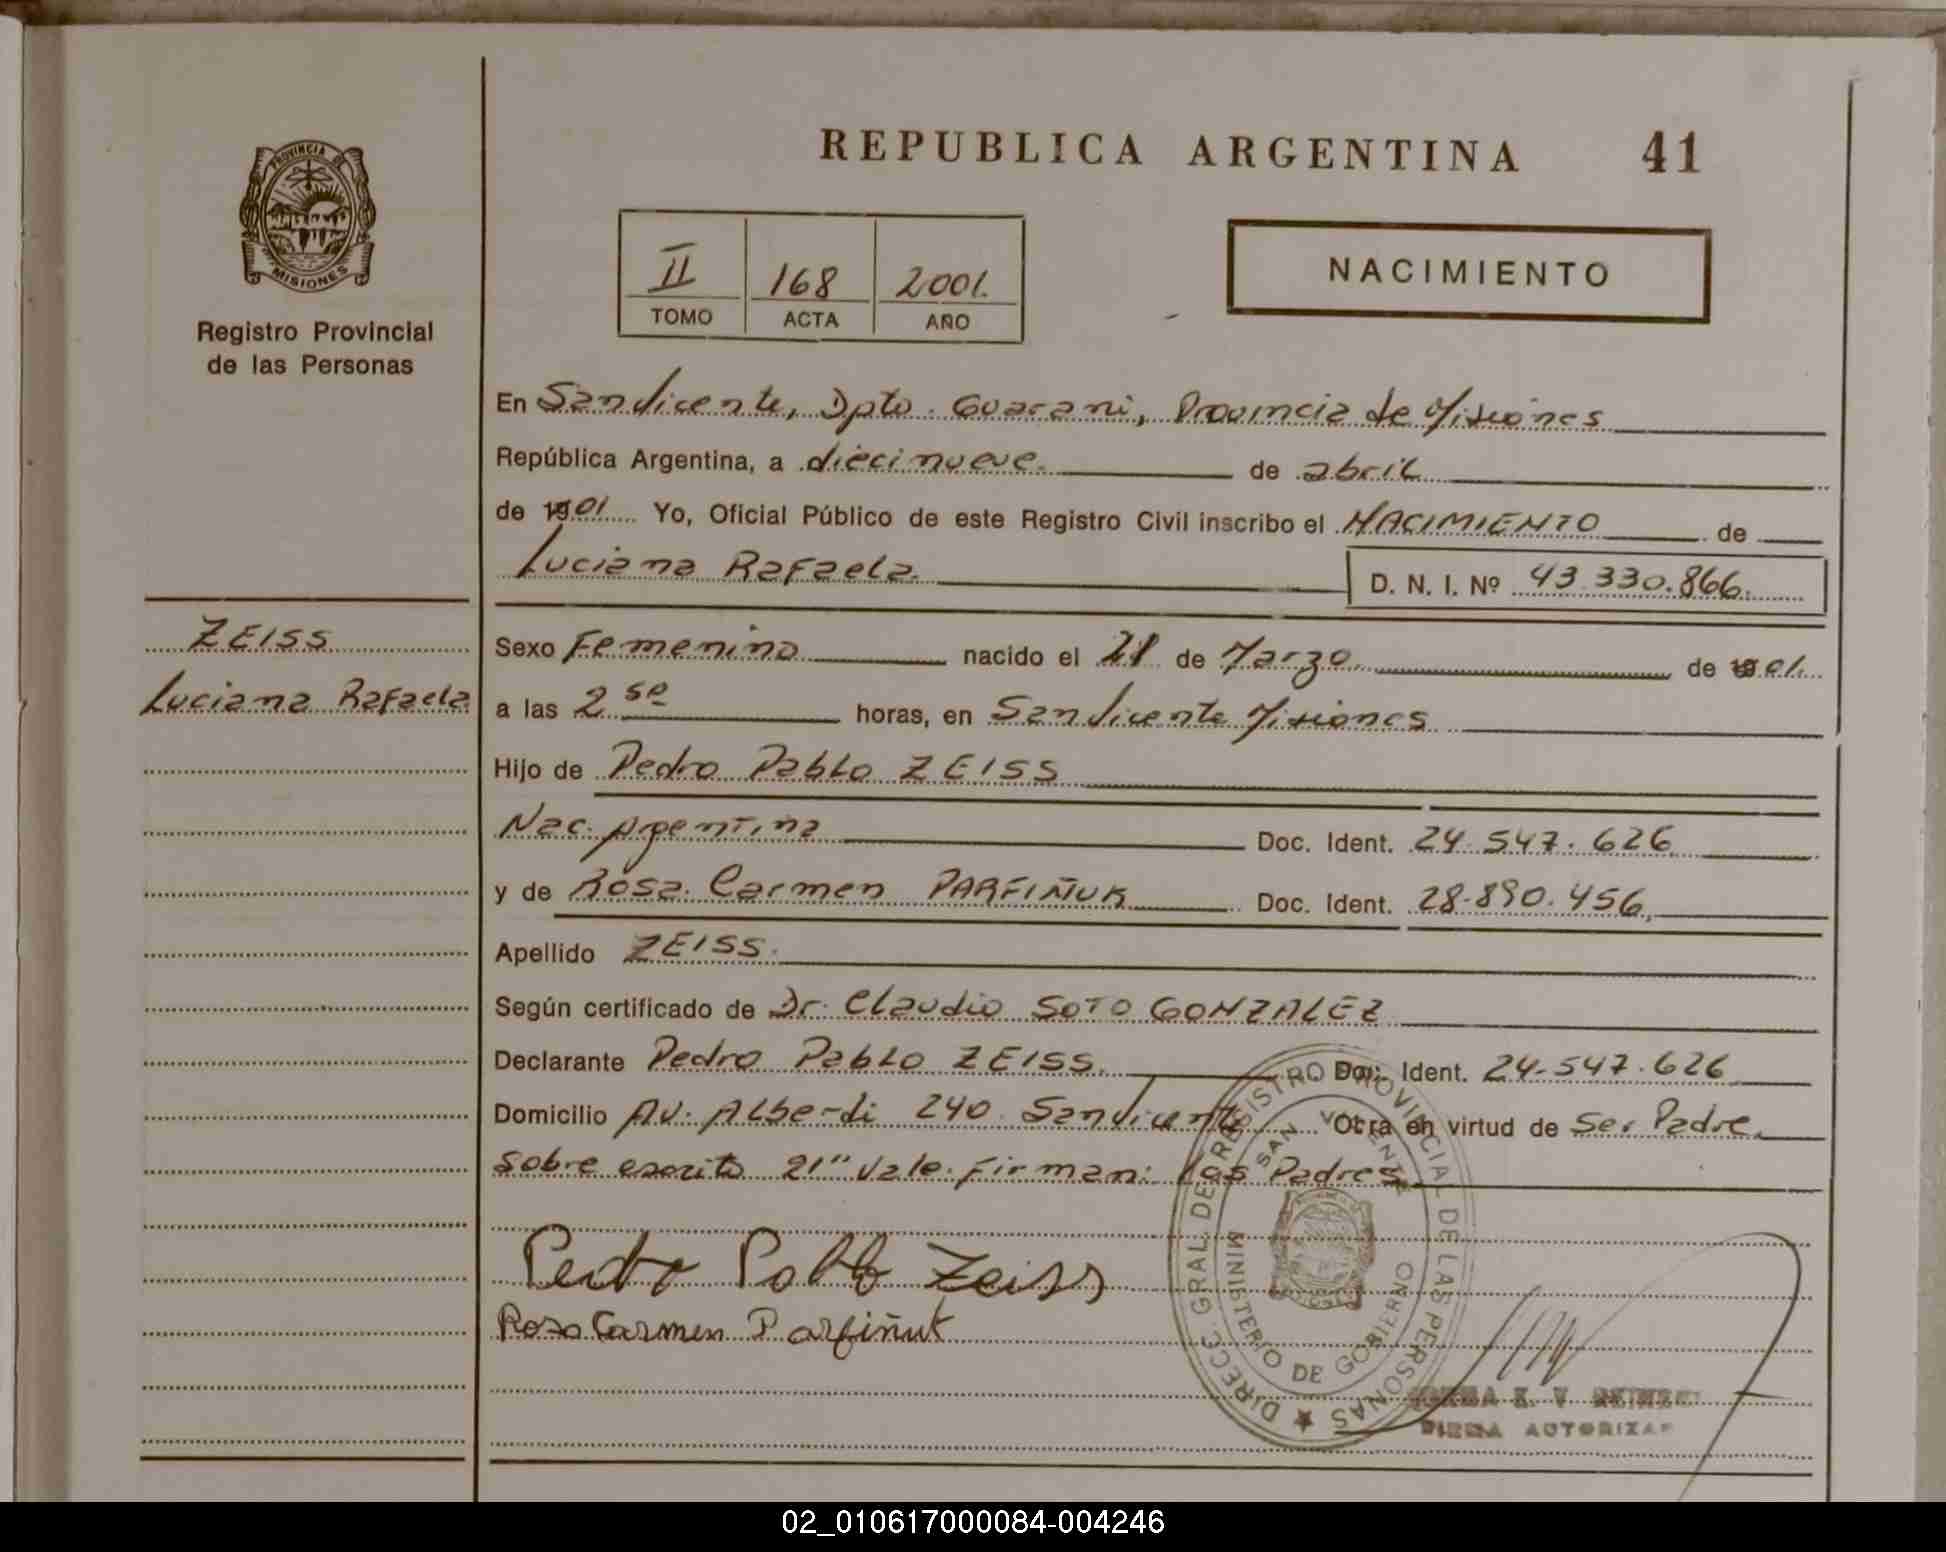 REPUBLICA ARGENTINA 41
PROVINCIA DE
MISIONES
Registro Provincial
de las Personas
II 168 2001.
TOMO ACTA AÑO
NACIMIENTO
En San Vicente, Dpto. Guarani, Provincia de Misiones
República Argentina, a diecinueve. de abril
de 1901 Yo, Oficial Público de este Registro Civil inscribo el NACIMIENTO de
Luciana Rafaela. D. N. I. Nº 43.330.866.
ZEISS
Luciana Rafaela
Sexo Femenino nacido el 21 de Marzo. de 1901.
a las 2 horas, en San Vicente Misiones
Hijo de Pedro Pablo ZEISS
Nac. Argentina Doc. Ident. 24.547.626
y de Rosa Carmen PARFIÑUK Doc. Ident. 28.890.456,
Apellido ZEISS.
Según certificado de Dr. Claudio SOTO GONZALEZ
Declarante Pedro Pablo ZEISS. Doc. Ident. 24.547.626
Domicilio Av. Alberdi 240 San Vicente Obra en virtud de Ser Padre.
sobre escrito 21" Vale. Firman: Los Padres
Pedro Pablo Zeiss
Rosa Carmen Parfiñuk
DIRECC. GRAL. DE REGISTRO PROVINCIAL DE LAS PERSONAS
SAN VICENTE
MINISTERIO DE GOBIERNO
FIRMA AUTORIZAD
02_010617000084-004246